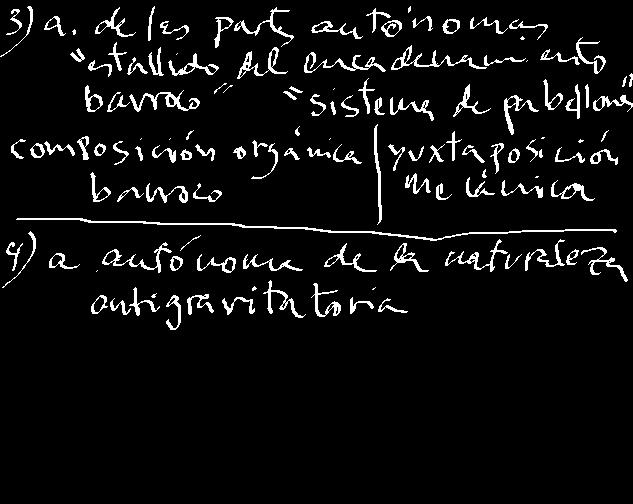 3) a. de las partes autónomas
"estallido del encadenamiento
barroco" "sistema de pabellones"
composición orgánica | yuxtaposición
barroco | mecánica
4) a autónoma de la naturaleza
antigravitatoria